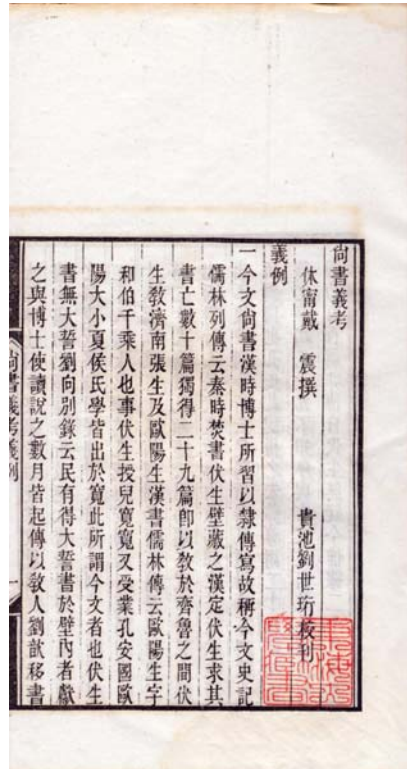 尚書義考
休甯戴　震撰　貴池劉世珩校刊
義例
一今文尚書漢時博士所習以隸傳寫故稱今文史記
儒林列傳云秦時焚書伏生壁藏之漢定伏生求其
書亡數十篇獨得二十九篇卽以敎於齊魯之間伏
生敎濟南張生及歐陽生漢書儒林傳云歐陽生字
和伯千乘人也事伏生授兒寬寬又受業孔安國歐
陽大小夏侯氏學皆出於寬此所謂今文者也伏生
書無大誓劉向別錄云民有得大誓書於壁內者獻
之與博士使讀說之數月皆起傳以敎人劉歆移書
尚書義考義例
一